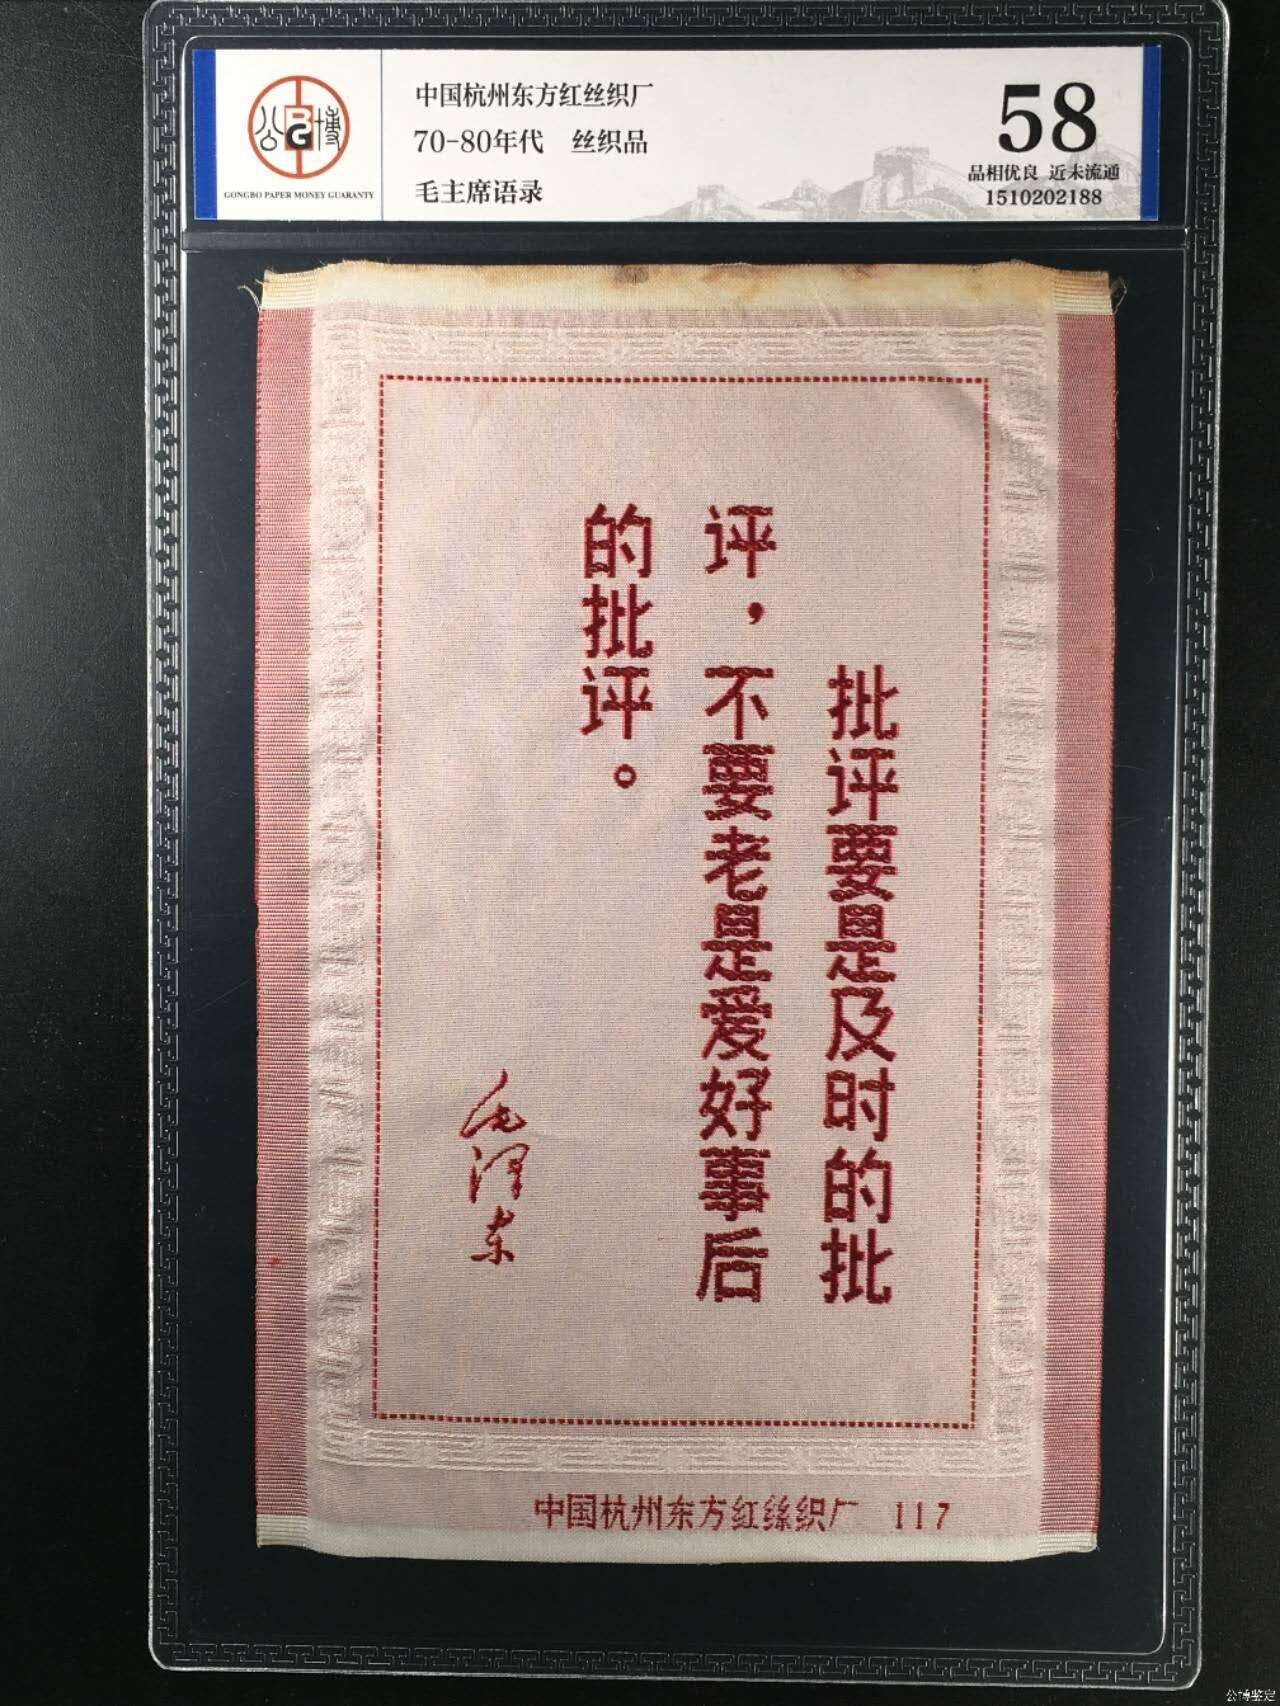 公 BG 博
GONGBO PAPER MONEY GUARANTY
中国杭州东方红丝织厂
70-80年代 丝织品
毛主席语录
58
品相优良 近未流通
1510202188
批评要是及时的批
评，不要老是爱好事后
的批评。
毛泽东
中国杭州东方红丝织厂 117
公博鉴定